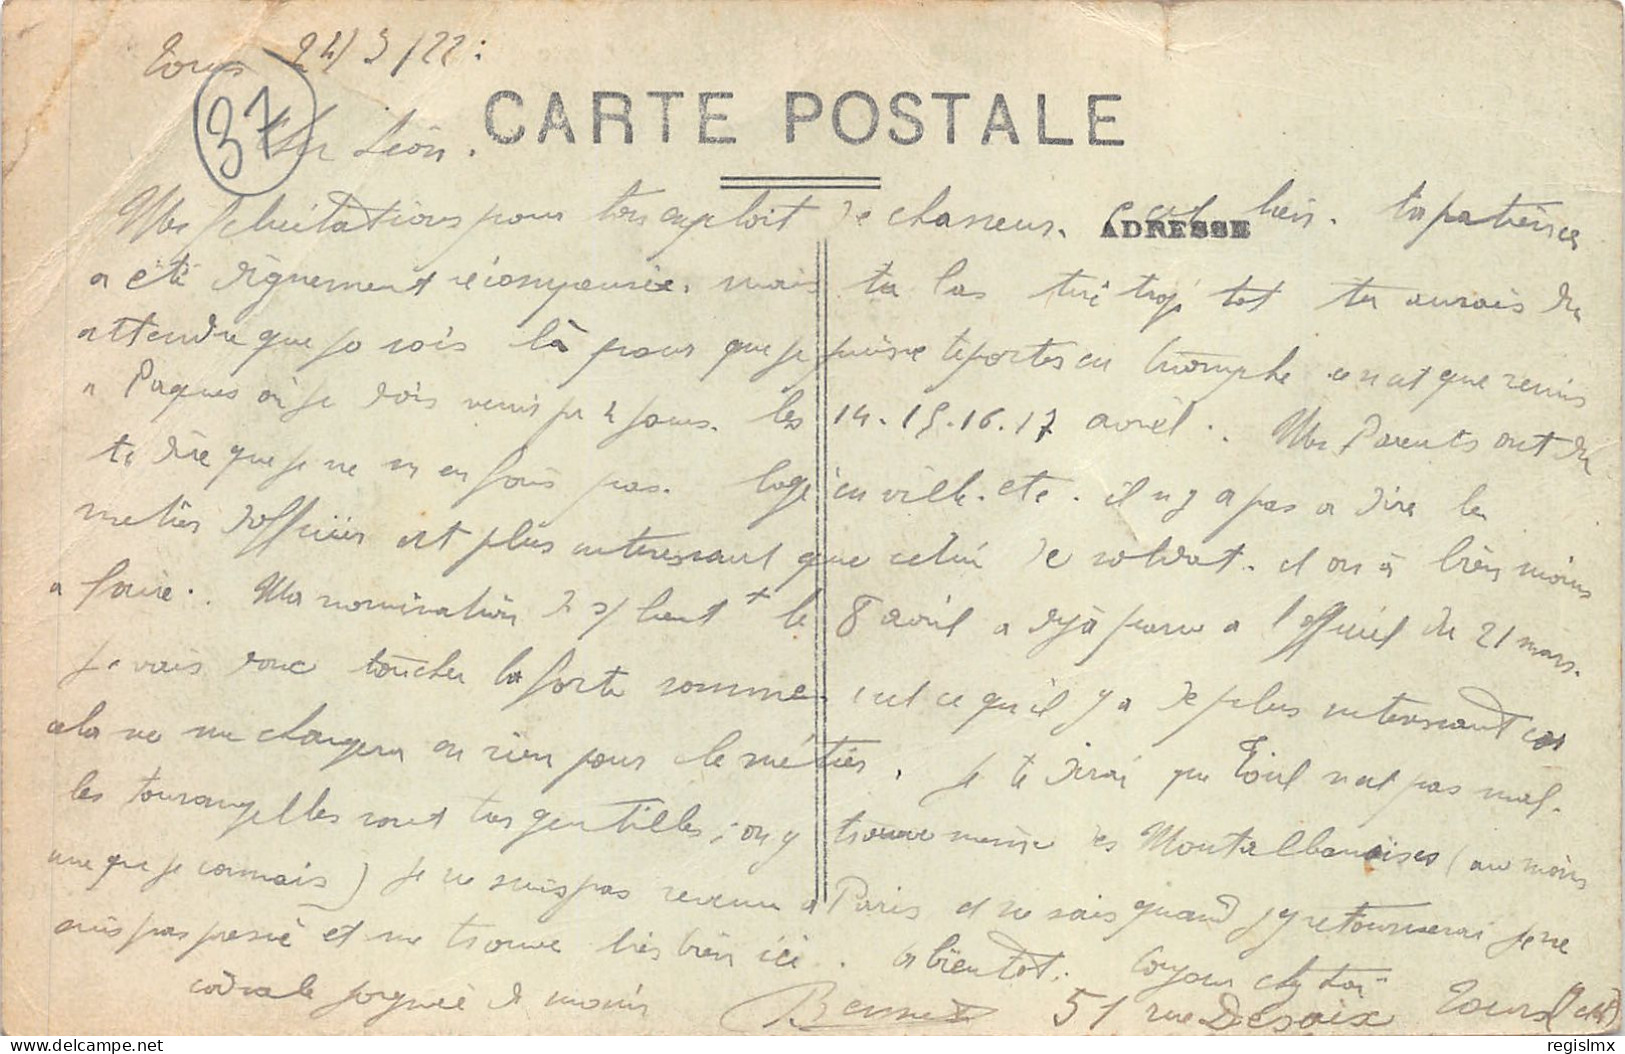 Tours 24/3/22.
37
CARTE POSTALE
Cher Léon.
ADRESSE
Mes felicitations pour ton exploit de chasseur. c'est bien. ta patience
a été dignement récompensée. mais tu las tué trop tot tu aurais du
attendre que je sois là pour que je puisse te porter en triomphe ce n'est que remis
a Paques où je dois venir pr 4 jours. les 14.15.16.17 avril. Mes Parents ont du
te dire que je ne m en fais pas. logé en ville. etc. il n y a pas a dire le
metier d'officier est plus interessant que celui de soldat. et on a bien moins
a faire. Ma nomination de s/lieut t le 8 avril a dejà paru a l'officiel du 21 mars.
Je vais donc toucher la forte somme. c'est ce qu'il y a de plus interessant car
cela ne me changera en rien pour le métier. Je te dirai que Toul n'est pas mal.
les tourangelles sont tres gentilles; on y trouve meme des Montalbanaises (au moins
une que je connais) je ne suis pas revenu a Paris et ne sais quand j'y retournerai je ne
suis pas pressé et me trouve très bien ici. A bientot. Bonjour chez toi
cordiale poignée de mains
51 rue Desaix Tours (I et L)
regislmx
delcampe.net